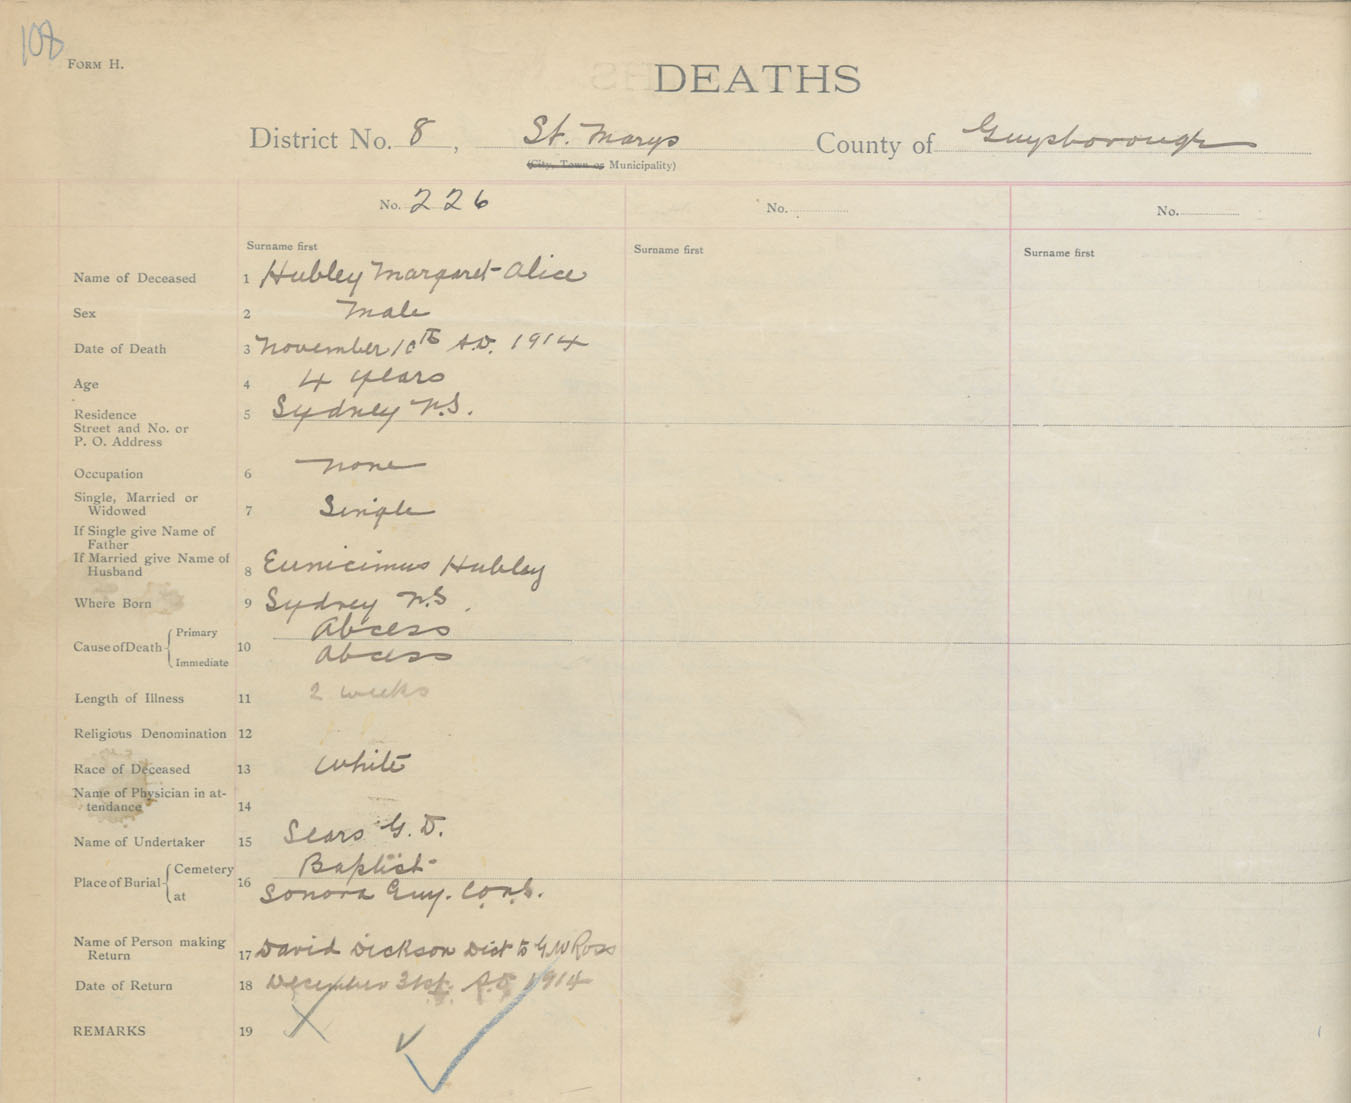 108
FORM H.
DEATHS
District No. 8, St. Marys County of Guysborough
(City, Town or Municipality)
No. 226 No. No.
Surname first Surname first Surname first
Name of Deceased 1 Hubley Margaret Alice
Sex 2 Male
Date of Death 3 November 10th A.D. 1914
Age 4 4 years
Residence 5 Sydney N.S.
Street and No. or
P. O. Address
Occupation 6 none
Single, Married or
Widowed 7 Single
If Single give Name of
Father
If Married give Name of
Husband 8 Eunicimus Hubley
Where Born 9 Sydney N.S.
Cause of Death Primary 10 Abcess
Immediate Abcess
Length of Illness 11 2 weeks
Religious Denomination 12
Race of Deceased 13 White
Name of Physician in at-
tendance 14
Name of Undertaker 15 Sears G. D.
Place of Burial Cemetery 16 Baptist
at Sonora Guy. Co. N.S.
Name of Person making
Return 17 David Dickson Dist to G W Ross
Date of Return 18 December 31st. A.D. 1914
REMARKS 19